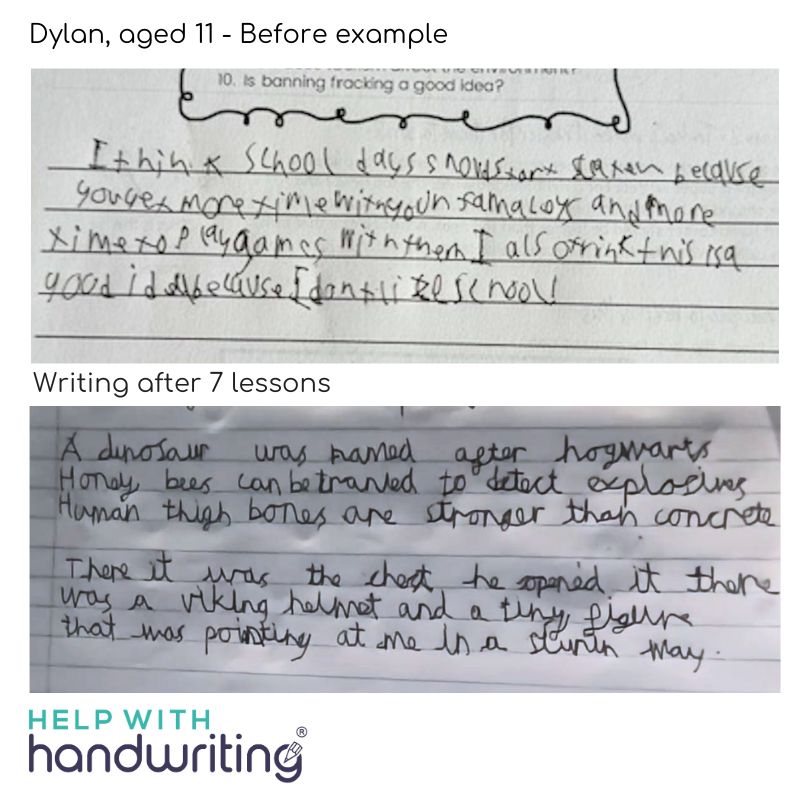 Dylan, aged 11 - Before example
10. Is banning fracking a good idea?
I think school days shoud start because
you get more time with your and more
time to play games with them I also think this is a
good idea because I dont like school!
Writing after 7 lessons
A dinosaur was named after hogwarts
Honey bees can be tranied to detect explosives
Human thigh bones are stronger than concrete
There it was the chest he opened it there
was a viking helmet and a tiny figure
that was pointing at me in a way.
HELP WITH
handwriting®